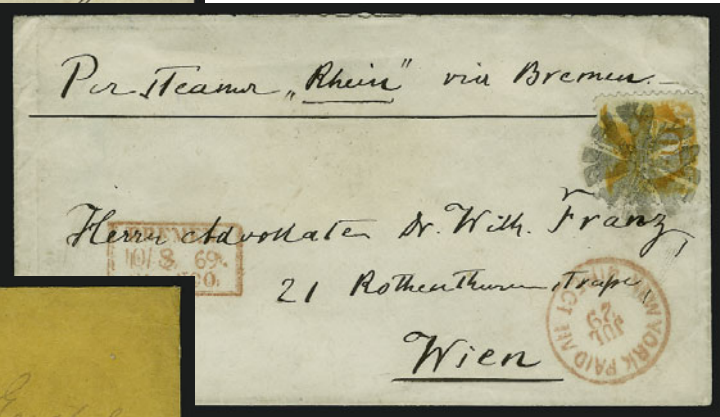 Per steamer „Rhein" via Bremen.
Herrn Advokaten Dr. Wilh. Franz,
BREMEN
10/8 69.
21 Rothenthurmstrasse
Wien
NEW YORK PAID ALL DIRECT
JUL
29